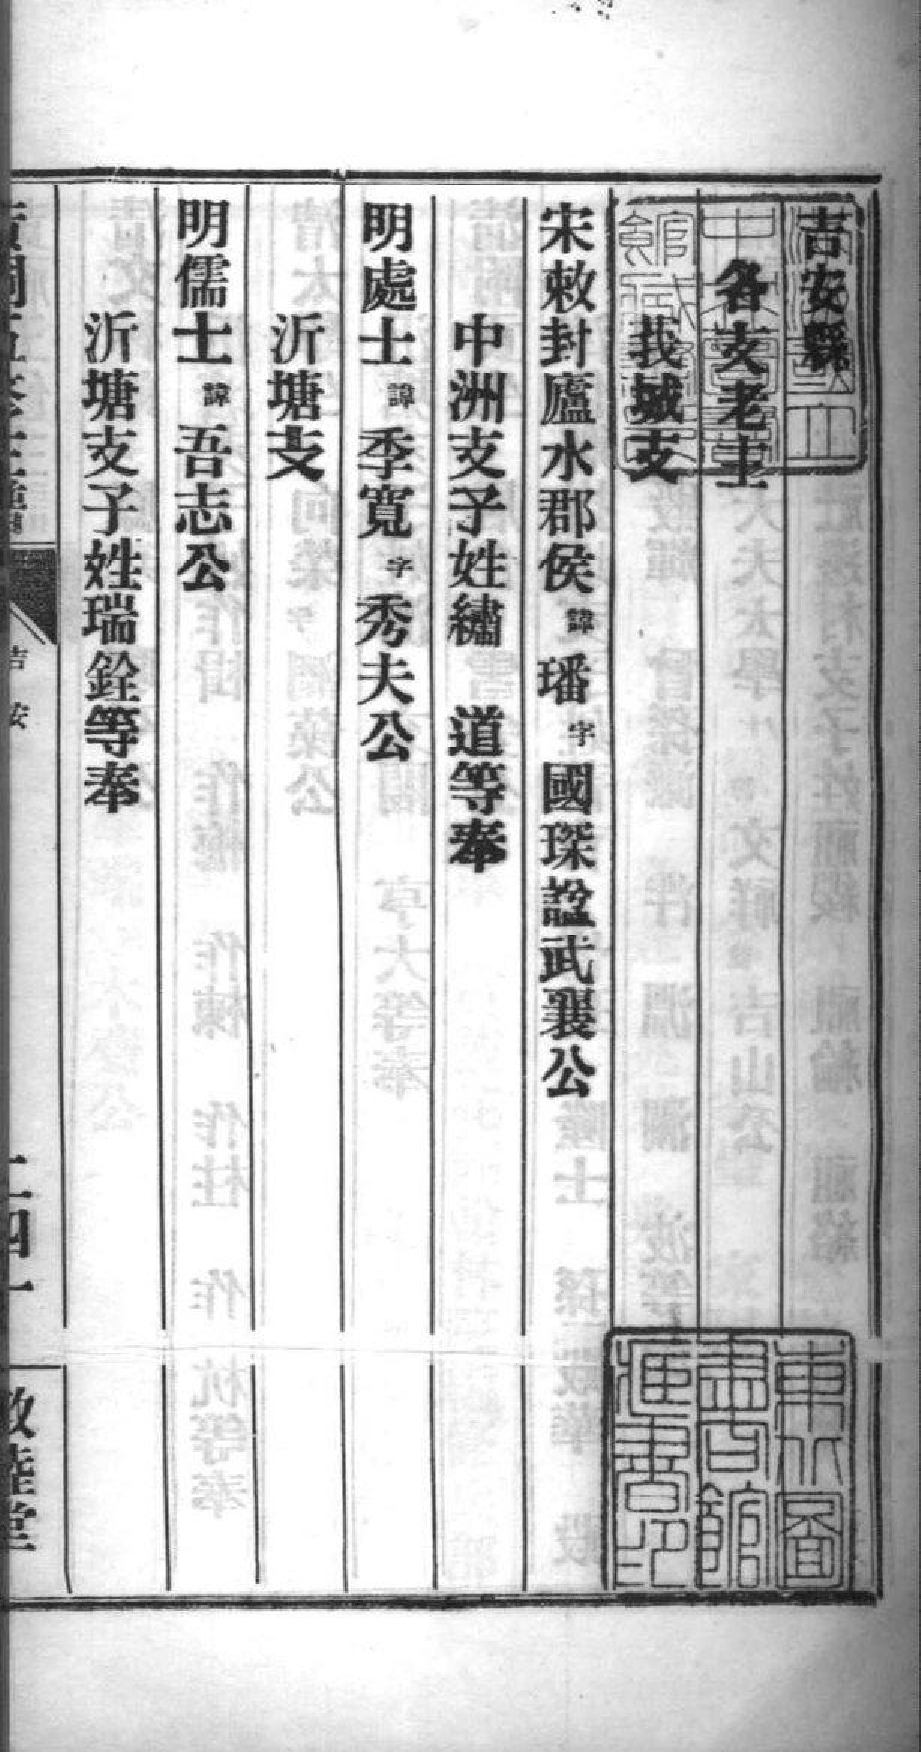 吉安縣
各支老主
莪城支
宋敕封廬水郡侯諱璠字國琛諡武襄公
中洲支子姓繡 道等奉
明處士諱季寬字秀夫公
沂塘支
明儒士諱吾志公
沂塘支子姓瑞銓等奉
吉安
二四一
敦睦堂
東北圖
書館
藏書印